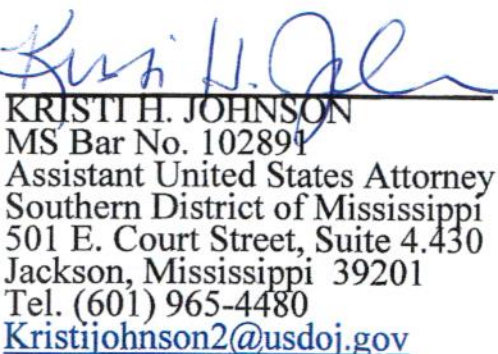 Kristi H. Joh
KRISTI H. JOHNSON
MS Bar No. 102891
Assistant United States Attorney
Southern District of Mississippi
501 E. Court Street, Suite 4.430
Jackson, Mississippi 39201
Tel. (601) 965-4480
Kristijohnson2@usdoj.gov